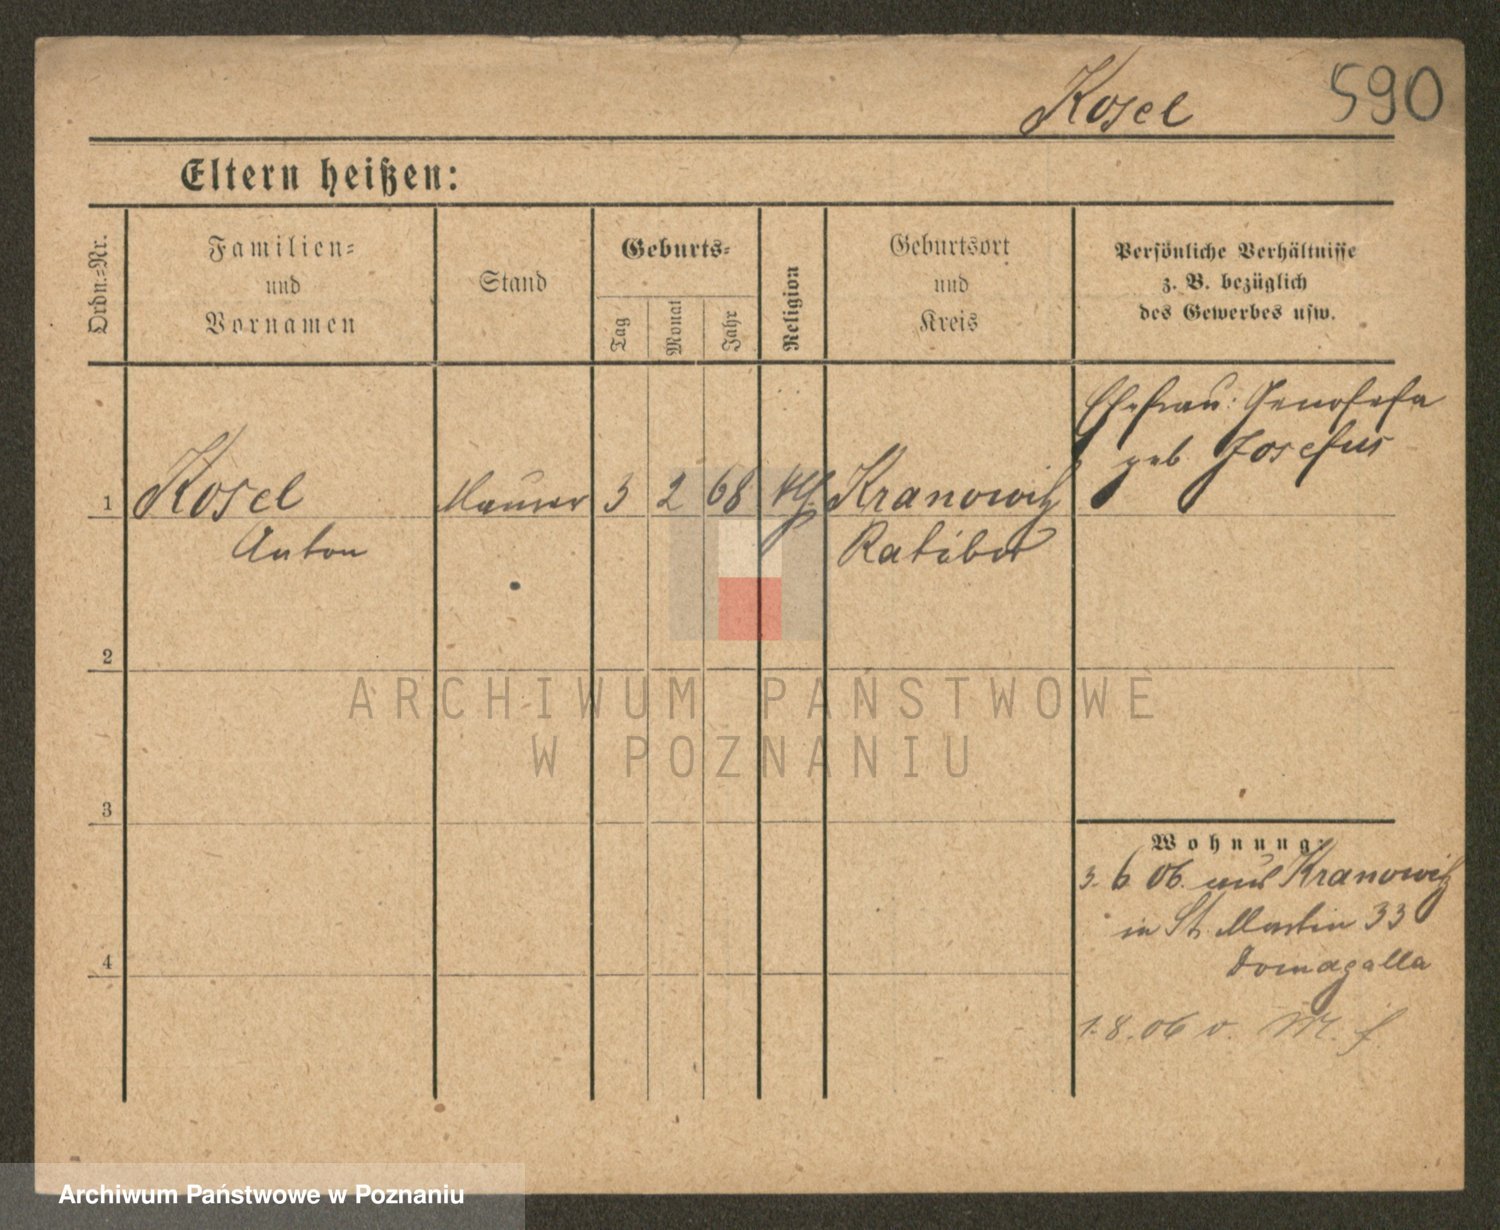 Kosel 590
Eltern heißen:
Ordn.=Nr.
Familien=
und
Vornamen
Stand
Geburts=
Tag
Monat
Jahr
Religion
Geburtsort
und
Kreis
Persönliche Verhältnisse
z. B. bezüglich
des Gewerbes usw.
Ehefrau: Genofefa
geb Josefus
1 Kosel Maurer 3 2 68 kth Kranowitz
Anton Ratibor
2
3
4
Wohnung:
3. 6 06. aus Kranowitz
in St. Martin 33
Domagalla
1. 8. 06 v. M. f.
ARCHIWUM PAŃSTWOWE
W POZNANIU
Archiwum Państwowe w Poznaniu